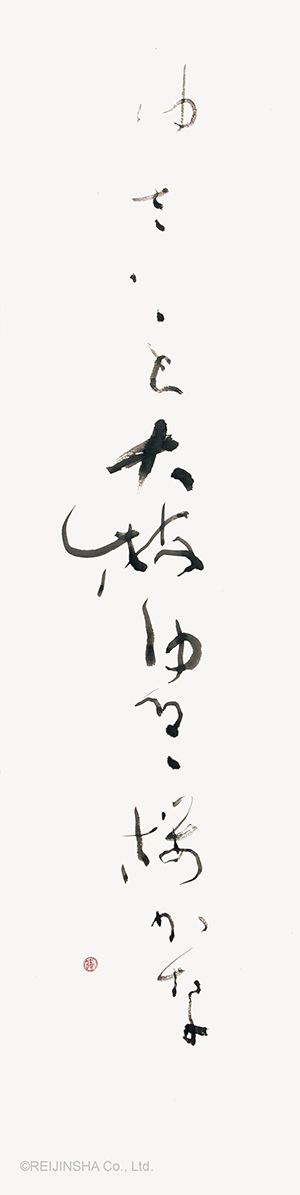 ゆさゝゝと大枝ゆるゝ桜かな
©REIJINSHA Co., Ltd.